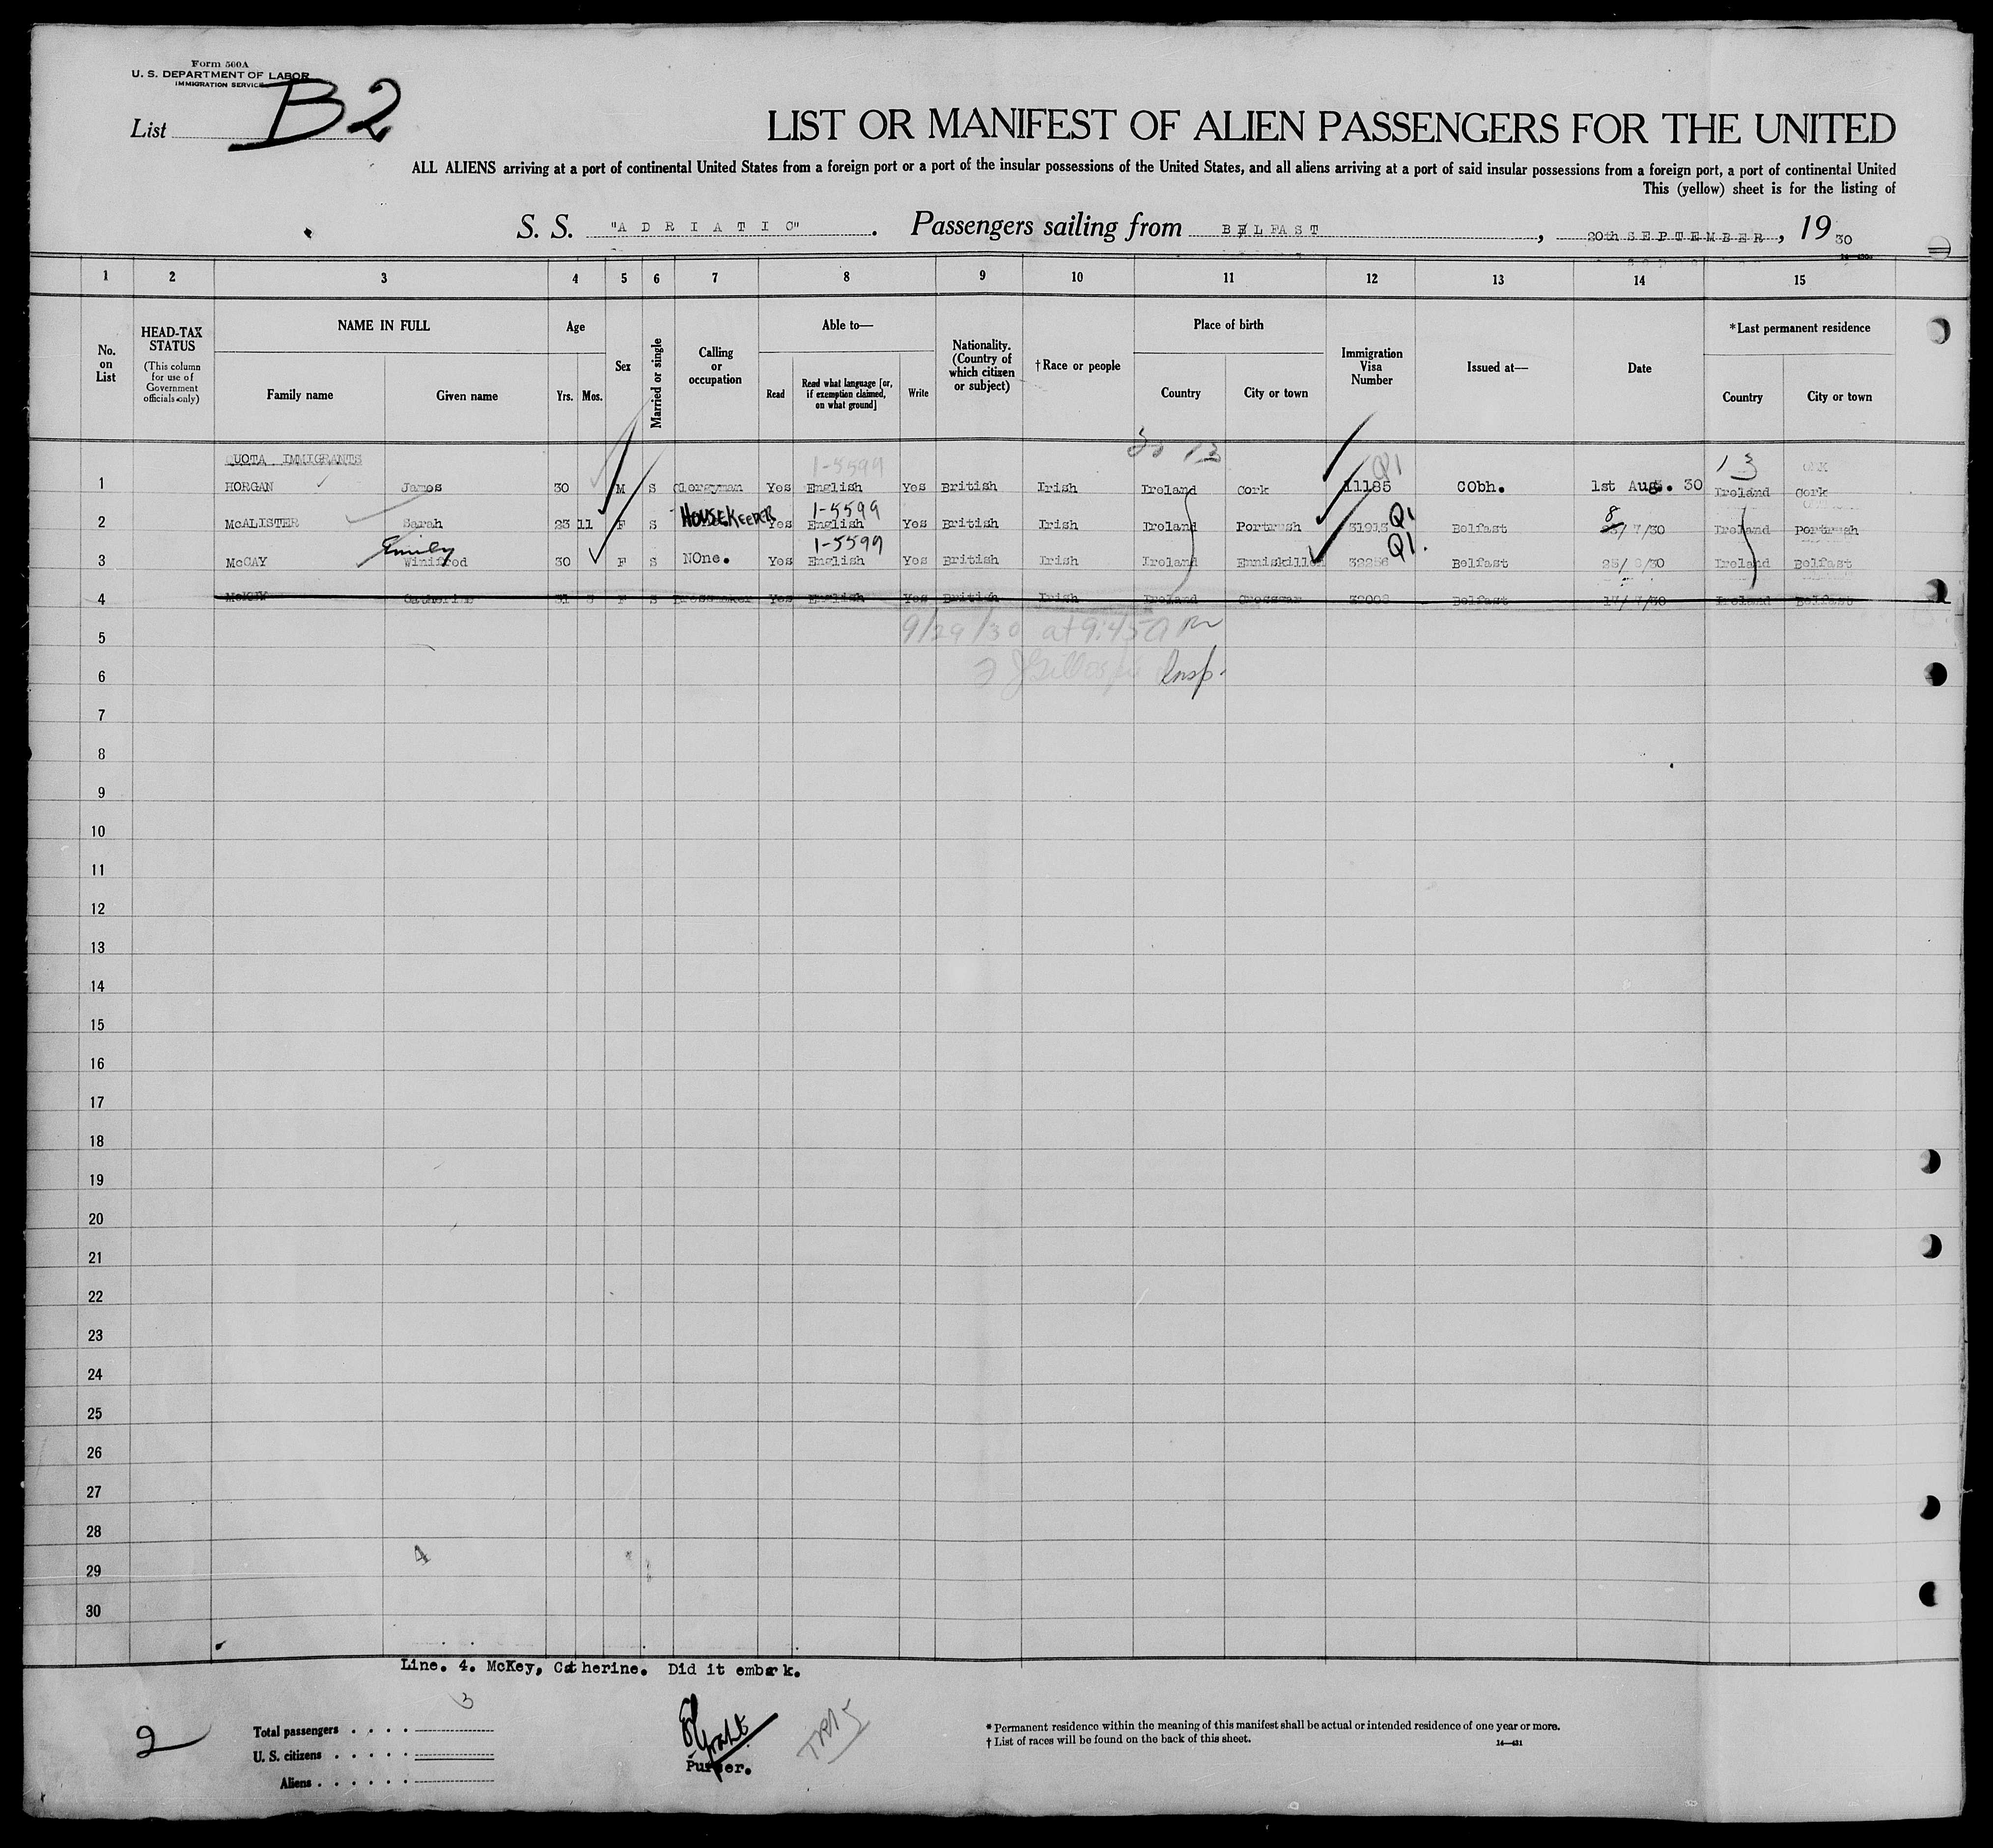 Form 500A
U. S. DEPARTMENT OF LABOR
IMMIGRATION SERVICE
List B2
LIST OR MANIFEST OF ALIEN PASSENGERS FOR THE UNITED
ALL ALIENS arriving at a port of continental United States from a foreign port or a port of the insular possessions of the United States, and all aliens arriving at a port of said insular possessions from a foreign port, a port of continental United
This (yellow) sheet is for the listing of
S. S. "A D R I A T I C" . Passengers sailing from BELFAST , 20th SEPTEMBER , 19 30
1 2 3 4 5 6 7 8 9 10 11 12 13 14 15
No. on List
HEAD-TAX STATUS
(This column for use of Government officials only)
NAME IN FULL
Family name Given name
Age
Yrs. Mos.
Sex
Married or single
Calling or occupation
Able to—
Read Read what language [or, if exemption claimed, on what ground] Write
Nationality. (Country of which citizen or subject)
†Race or people
Place of birth
Country City or town
Immigration Visa Number
Issued at—
Date
*Last permanent residence
Country City or town
QUOTA IMMIGRANTS
1-5599 Q1 13
1 HORGAN James 30 M S Clergyman Yes English Yes British Irish Ireland Cork 11186 CObh. 1st Aug. 30 Ireland Cork
1-5599 Q1 8
2 McALISTER Sarah 23 11 F S HOUSEKEEPER Yes English Yes British Irish Ireland Portrush Belfast /7/30 Ireland Portrush
Emily 1-5599 Q1.
3 McCAY Winifred 30 F S NOne. Yes English Yes British Irish Ireland Enniskillen 32256 Belfast 25/8/30 Ireland Belfast
4 Catherine 31 F S Dressmaker Yes English Yes British Irish Ireland Crossgar Belfast Ireland Belfast
5 9/29/30 at 9:45 a m
6 Insp.
7
8
9
10
11
12
13
14
15
16
17
18
19
20
21
22
23
24
25
26
27
28
4
29
30
Line. 4. McKey, Catherine. Did it embark.
2
Total passengers . . . . 3
U. S. citizens . . . . .
Aliens . . . . . .
Purser.
* Permanent residence within the meaning of this manifest shall be actual or intended residence of one year or more.
† List of races will be found on the back of this sheet.
14—431